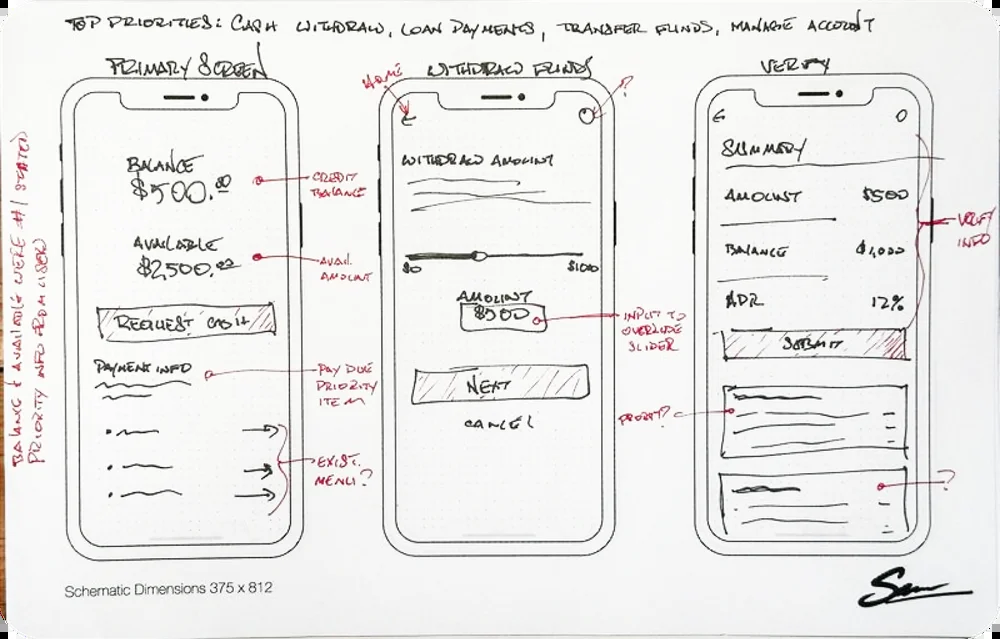 TOP PRIORITIES: CASH WITHDRAW, LOAN PAYMENTS, TRANSFER FUNDS, MANAGE ACCOUNT
BALANCE & AVAILABLE WERE #1 STATED
PRIORITY INFO FROM USER
PRIMARY SCREEN
BALANCE
$500.00
CREDIT
BALANCE
AVAILABLE
$2,500.00
AVAIL.
AMOUNT
REQUEST CASH
PAYMENT INFO
PAY DUE
PRIORITY
ITEM
EXIST.
MENU?
WITHDRAW FUNDS
HOME
?
WITHDRAW AMOUNT
$0
$1000
AMOUNT
$500
INPUT TO
OVERRIDE
SLIDER
NEXT
CANCEL
VERIFY
SUMMARY
AMOUNT $500
BALANCE $1,000
ADR 12%
VERIFY
INFO
SUBMIT
?
Schematic Dimensions 375 x 812